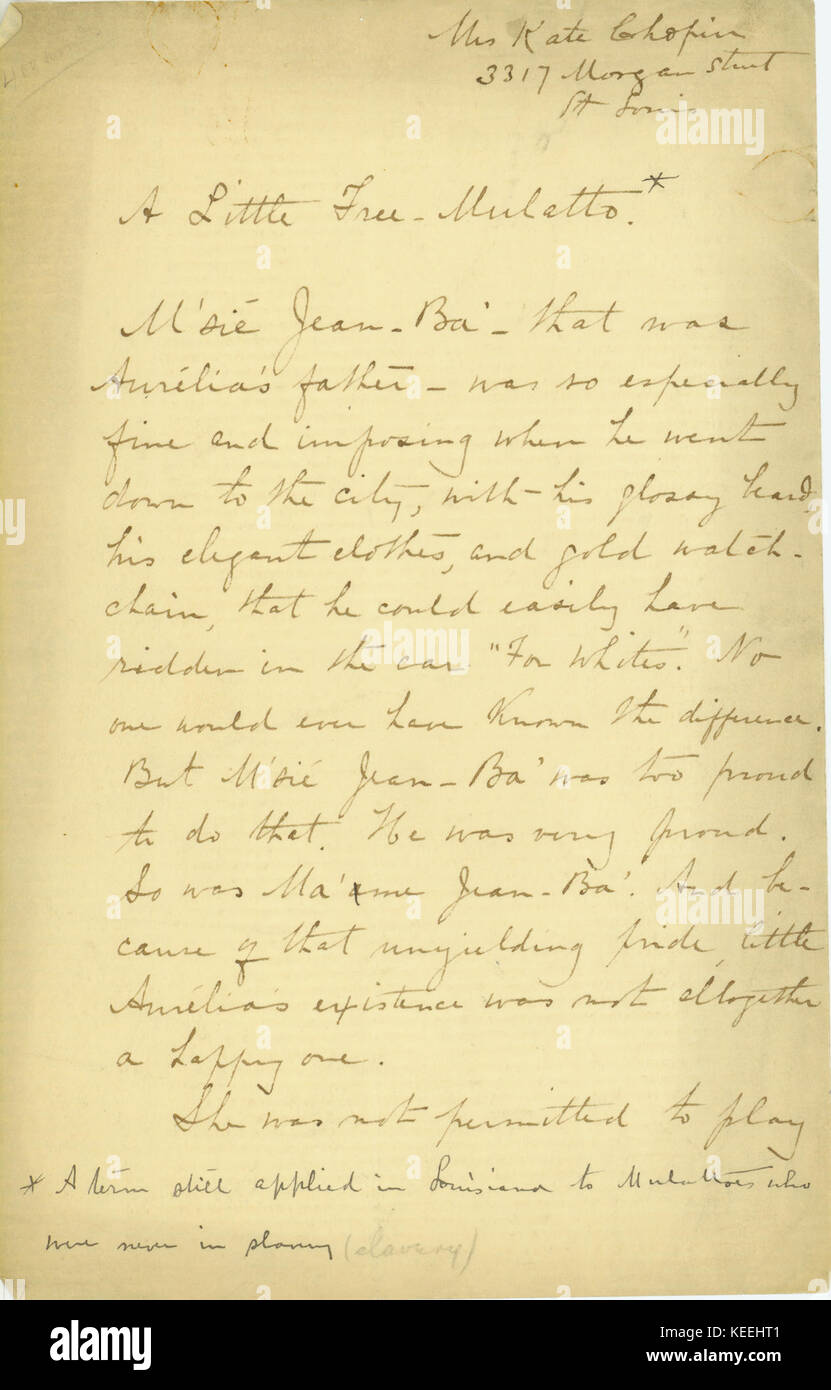 Mrs Kate Chopin
3317 Morgan Street
St Louis
A Little Free-Mulatto.*
M'sié Jean-Ba' - that was
Aurélia's father - was so especially
fine and imposing when he went
down to the city, with his glossy beard,
his elegant clothes, and gold watch-
chain, that he could easily have
ridden in the car "For Whites". No
one would ever have known the difference.
But M'sié Jean-Ba' was too proud
to do that. He was very proud.
So was Ma'me Jean-Ba'. And be-
cause of that unyielding pride, little
Aurélia's existence was not altogether
a happy one.
She was not permitted to play
* A term still applied in Louisiana to Mulattoes who
were never in slavery (slavery)
alamy
Image ID: KEEHT1
www.alamy.com